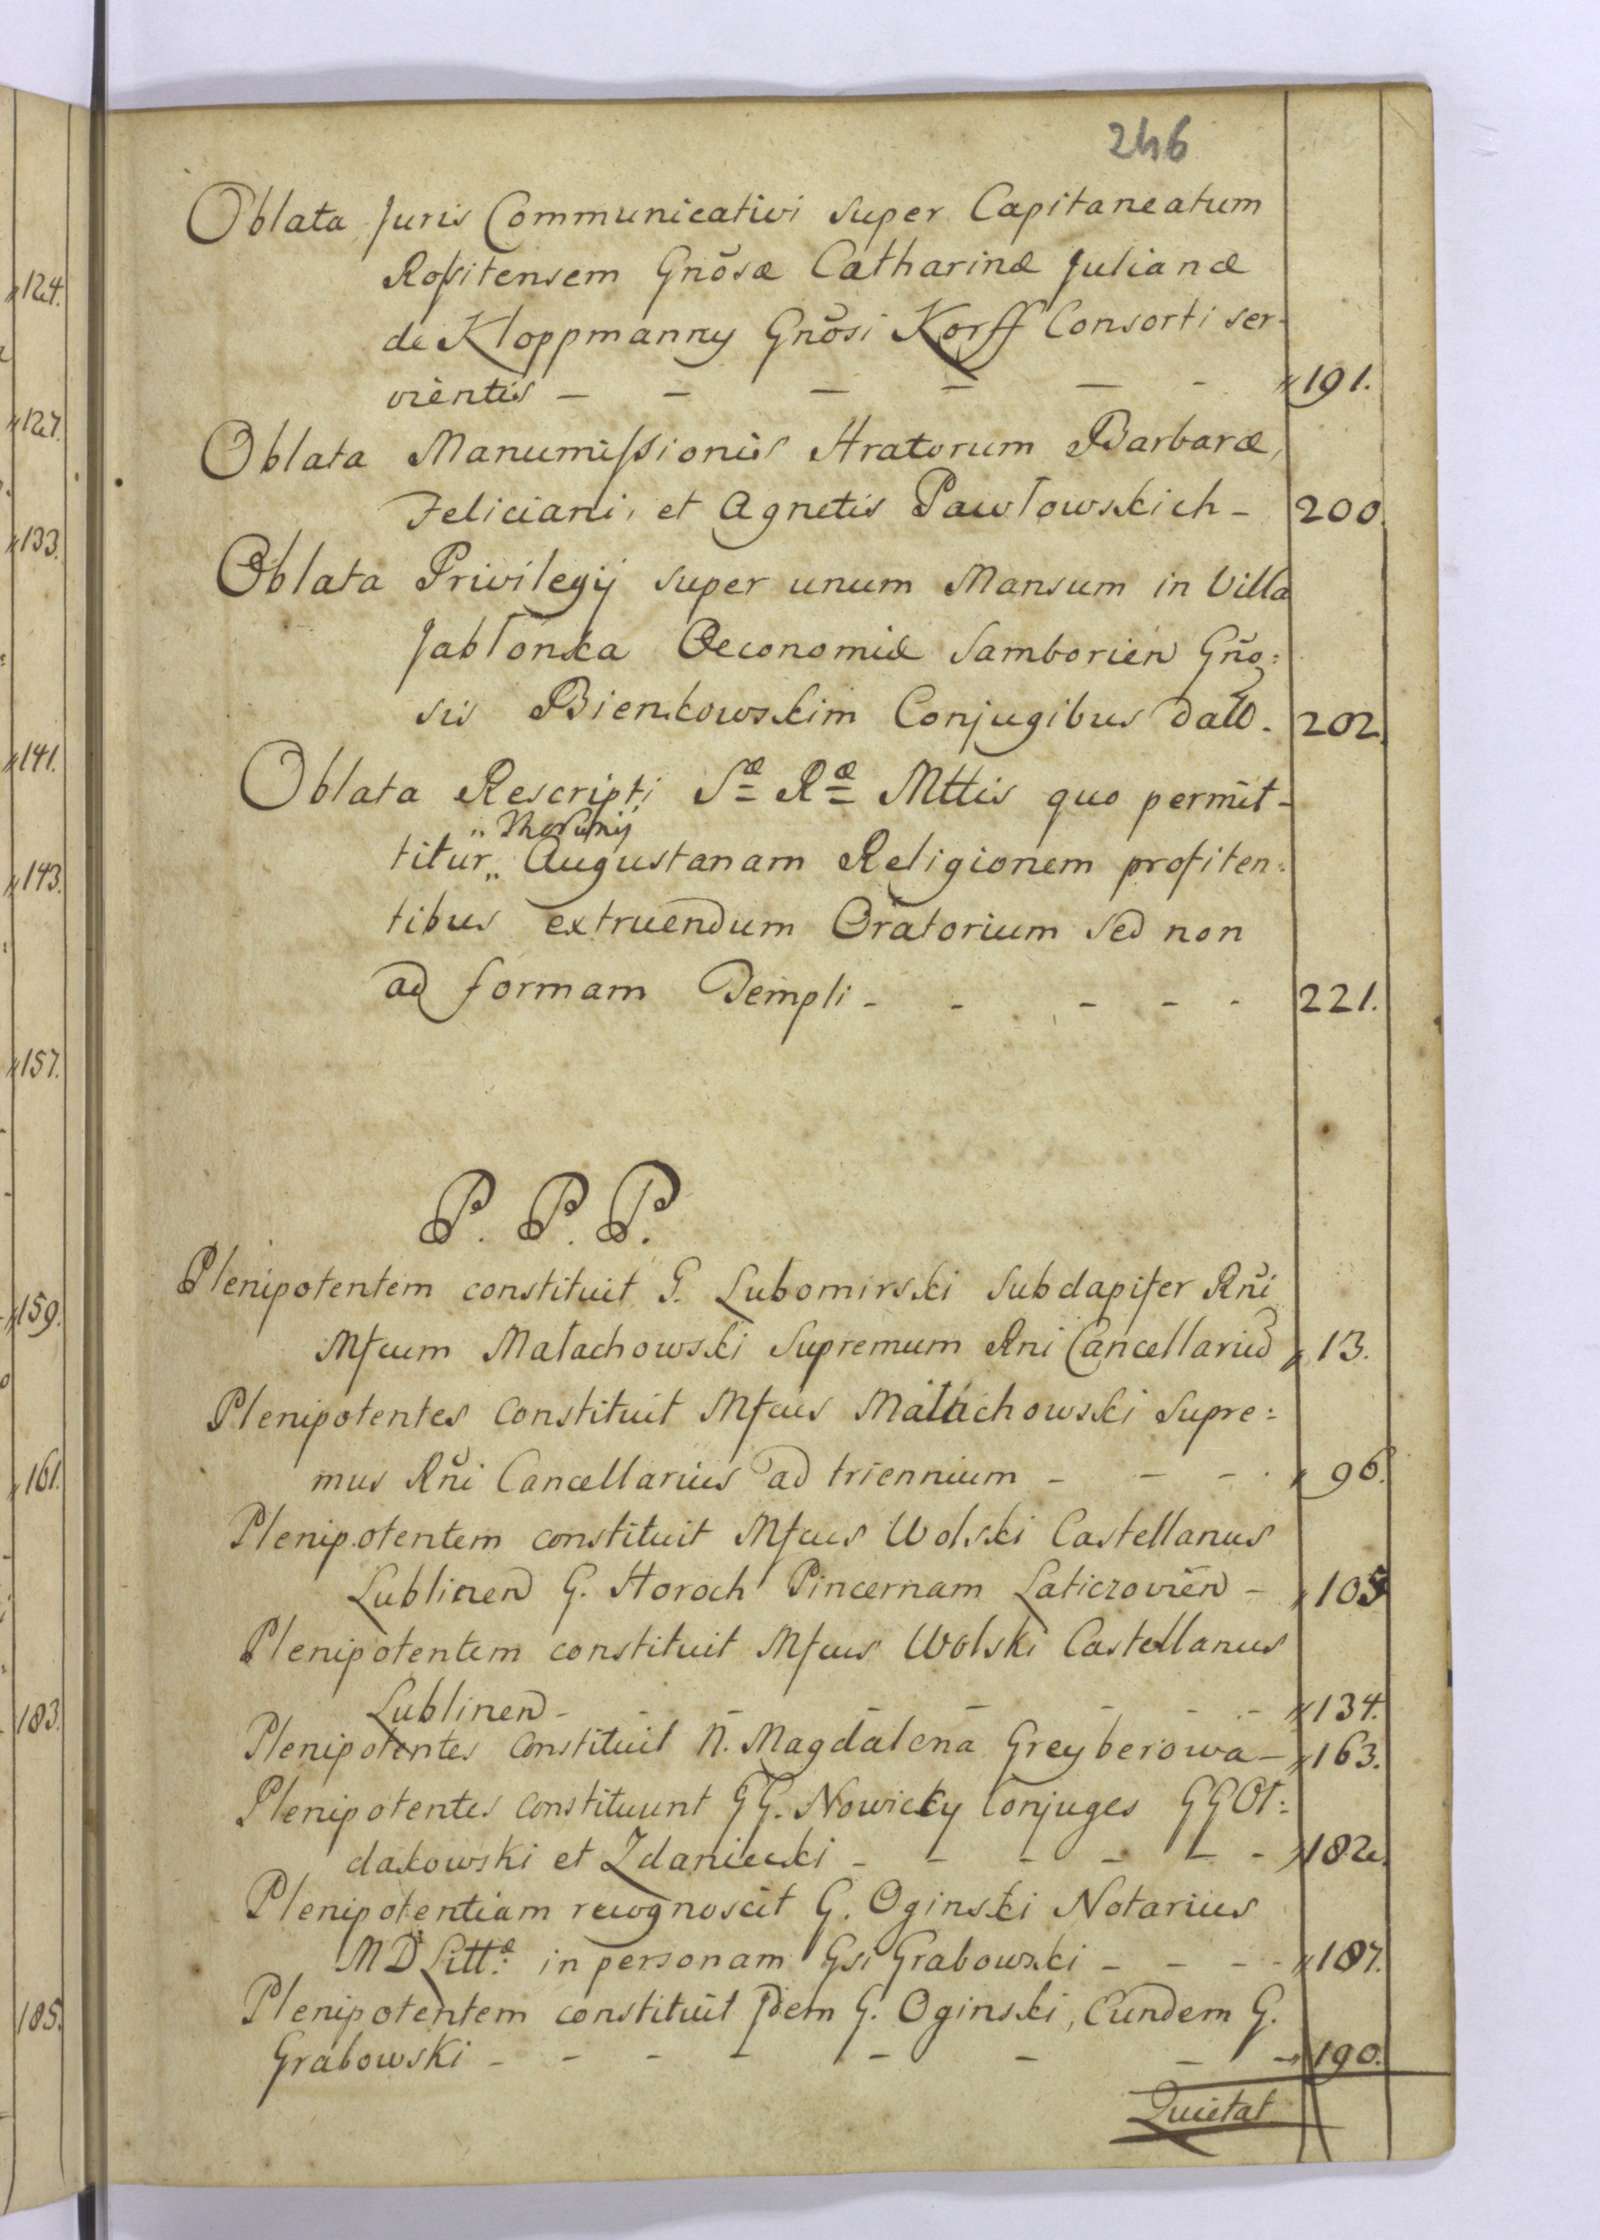 246
Oblata Juris Communicativi super Capitaneatum
Rossitensem Gnõsæ Catharinæ Julianæ
de Kloppmanny Gnõsi Korff Consorti ser-
vientis — — — — — - "191.
Oblata Manumissionis Hratorum Barbaræ,
Feliciani, et Agnetis Pawłowskich - 200.
Oblata Privilegij super unum Mansum in Villa
Jabłonka Oeconomiæ Samborien Gño:
sis Bienkowskim Conjugibus dato. 202.
Oblata Rescripti Sæ Ræ Mttis quo permit-
" Thorunij
titur „ Augustanam Religionem profiten:
tibus extruendum Oratorium sed non
ad formam Templi - - - - - 221.
P. P. P.
Plenipotentem constituit G. Lubomirski Subdapifer Rñi
Mfcum Małachowski Supremum Rni Cancellariũ " 13.
Plenipotentes constituit Mfcus Małachowski Supre:
mus Rñi Cancellarius ad triennium - - - . " 96.
Plenipotentem constituit Mfcus Wolski Castellanus
Lublinen G. Horoch Pincernam Laticzovien - " 105
Plenipotentem constituit Mfcus Wolski Castellanus
Lublinen - - - - - - - "134.
Plenipotentes constituit N. Magdalena Greyberowa - "163.
Plenipotentes constituunt GG. Nowicky Conjuges GG Ot:
dakowski et Zdaniecki - - - - - - "182.
Plenipotentiam recognoscit G. Oginski Notarius
M D Littæ. in personam Gsi Grabowski - - - - "187.
Plenipotentem constituit Idem G. Oginski, Eundem G.
Grabowski - - - - - - - - "190.
Quietat
"124.
"127.
"133.
"141.
"143.
"157.
"159.
"161.
183.
185.